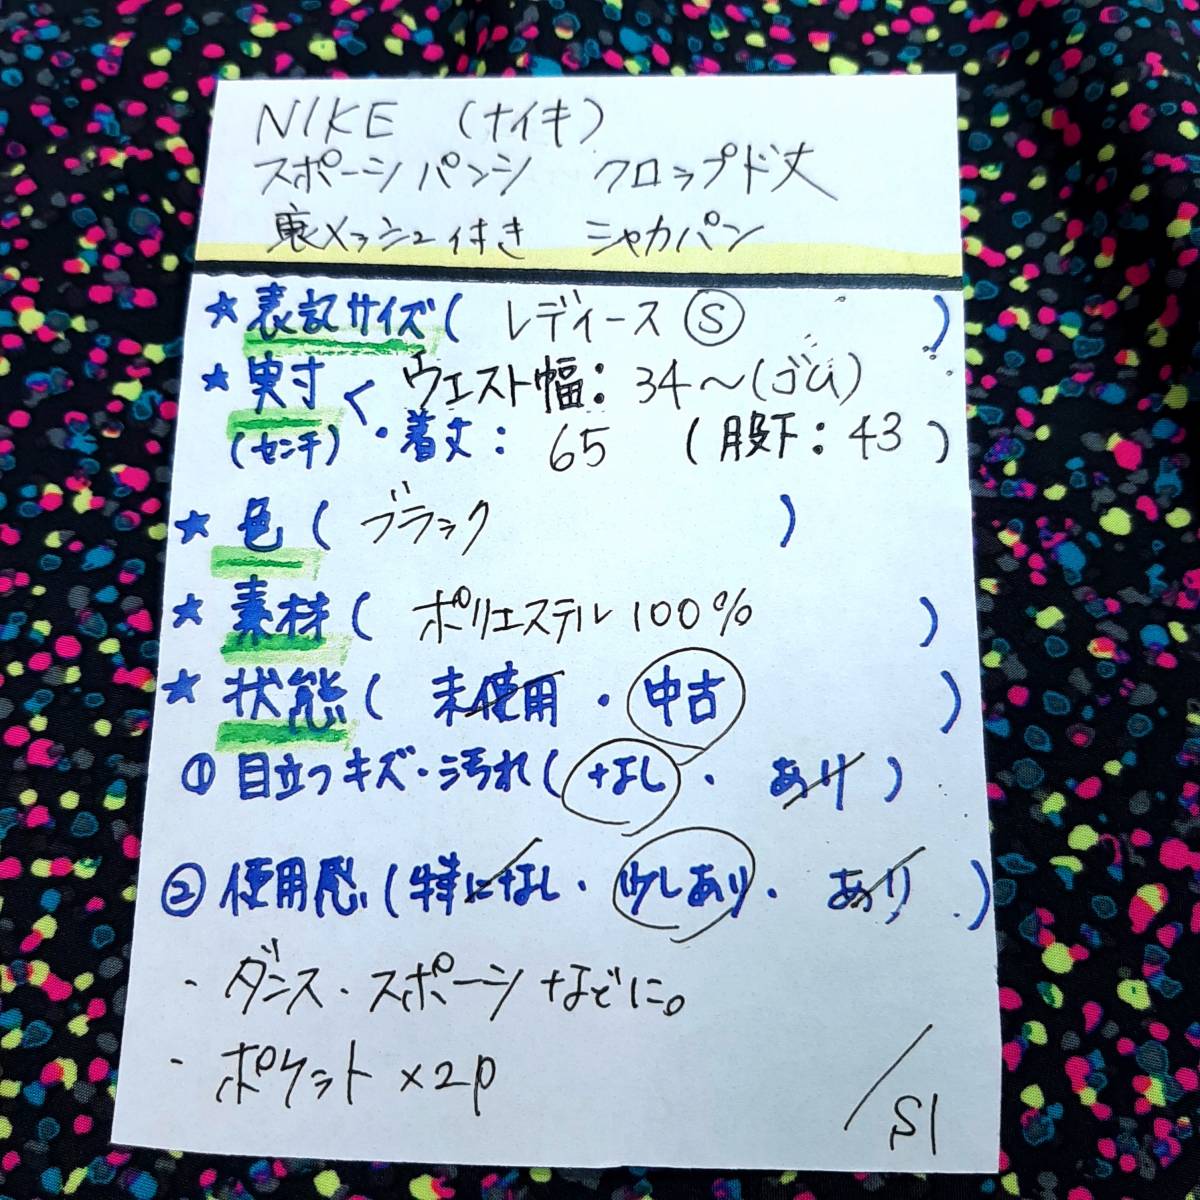 NIKE (ナイキ)
スポーツパンツ クロップド丈
裏メッシュ付き シャカパン
★表記サイズ( レディース Ⓢ )
★実寸< ウエスト幅: 34〜(ゴム)
(センチ)・着丈: 65 (股下: 43 )
★色( ブラック )
★素材( ポリエステル100% )
★状態( 未使用・中古 )
①目立つキズ・汚れ( なし・ あり )
②使用感(特になし・少しあり・ あり )
・ダンス・スポーツなどに。
・ポケット×2p
/S1